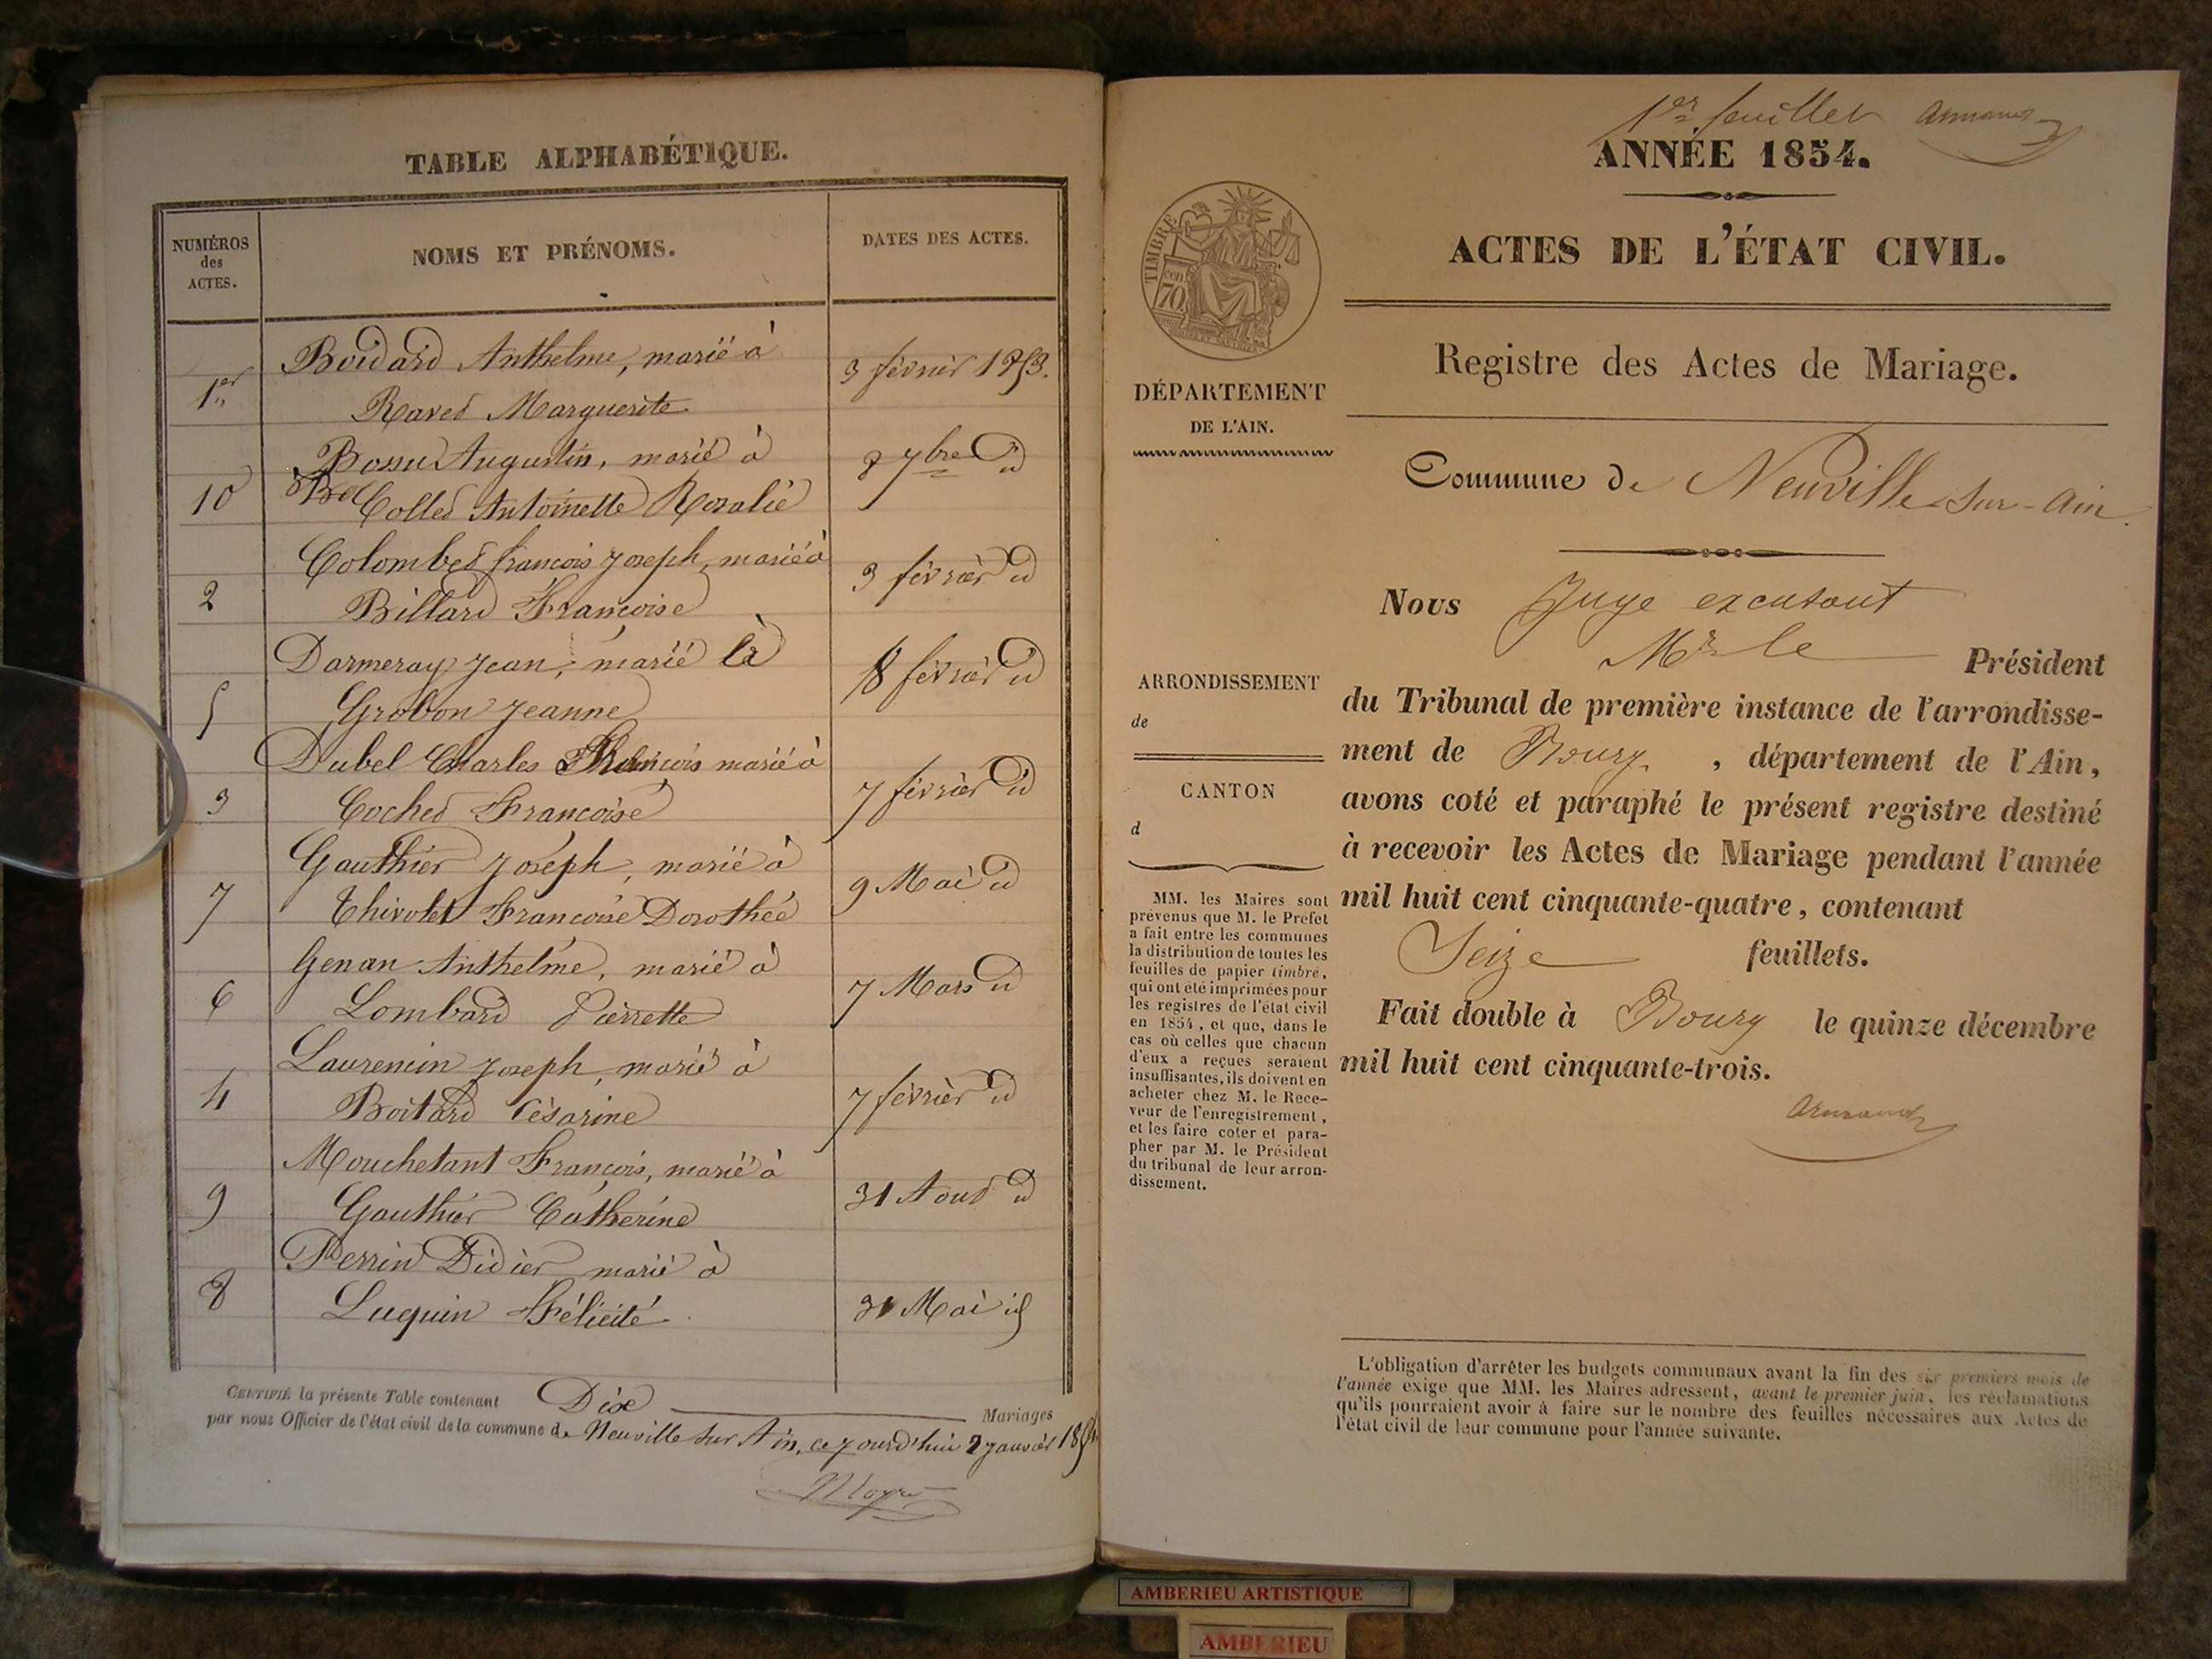 TABLE ALPHABÉTIQUE.
NUMÉROS
des
ACTES.
NOMS ET PRÉNOMS.
DATES DES ACTES.
1er
Boidard Anthelme, marié à
Ravet Marguerite
3 février 1853.
10
Bossu Augustin, marié à
Collet Antoinette Rosalie
8 7bre id
2
Colombet françois Joseph, marié à
Billard Françoise
3 février id
5
Darmeray Jean, marié à
Grobon Jeanne
18 février id
3
Dubel Charles François marié à
Cochet Françoise
7 février id
7
Gauthier Joseph, marié à
Thivolet Françoise Dorothée
9 Mai id
6
Genan Anthelme, marié à
Lombard Pierrette
7 Mars id
4
Laurencin Joseph, marié à
Boitard Césarine
7 février id
9
Mouchetant François, marié à
Gauthier Catherine
31 Aout id
8
Perrin Didier marié à
Luquin Félicité
31 Mai id
CERTIFIÉ la présente Table contenant Dix Mariages
par nous Officier de l'état civil de la commune de Neuville sur Ain, ce jourd'hui 2 janvier 1854
1er feuillet Armand
ANNÉE 1854.
ACTES DE L'ÉTAT CIVIL.
Registre des Actes de Mariage.
Commune de Neuville-sur-Ain
TIMBRE
cen
70
DÉPARTEMENT
DE L'AIN.
ARRONDISSEMENT
de
CANTON
d
MM. les Maires sont
prévenus que M. le Préfet
a fait entre les communes
la distribution de toutes les
feuilles de papier timbré,
qui ont été imprimées pour
les registres de l'état civil
en 1854, et que, dans le
cas où celles que chacun
d'eux a reçues seraient
insuffisantes, ils doivent en
acheter chez M. le Rece-
veur de l'enregistrement,
et les faire coter et para-
pher par M. le Président
du tribunal de leur arron-
dissement.
Nous Juge excusant
Mr le Président
du Tribunal de première instance de l'arrondisse-
ment de Bourg, département de l'Ain,
avons coté et paraphé le présent registre destiné
à recevoir les Actes de Mariage pendant l'année
mil huit cent cinquante-quatre, contenant
Seize feuillets.
Fait double à Bourg le quinze décembre
mil huit cent cinquante-trois.
Armand
L'obligation d'arrêter les budgets communaux avant la fin des six premiers mois de
l'année exige que MM. les Maires adressent, avant le premier juin, les réclamations
qu'ils pourraient avoir à faire sur le nombre des feuilles nécessaires aux Actes de
l'état civil de leur commune pour l'année suivante.
AMBERIEU ARTISTIQUE
AMBERIEU